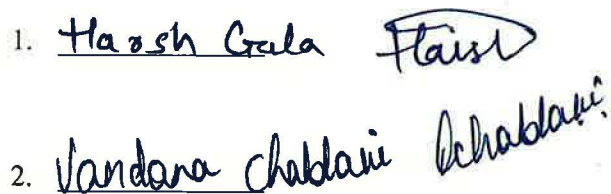 1. Harsh Gala
2. Vandana Chabdani